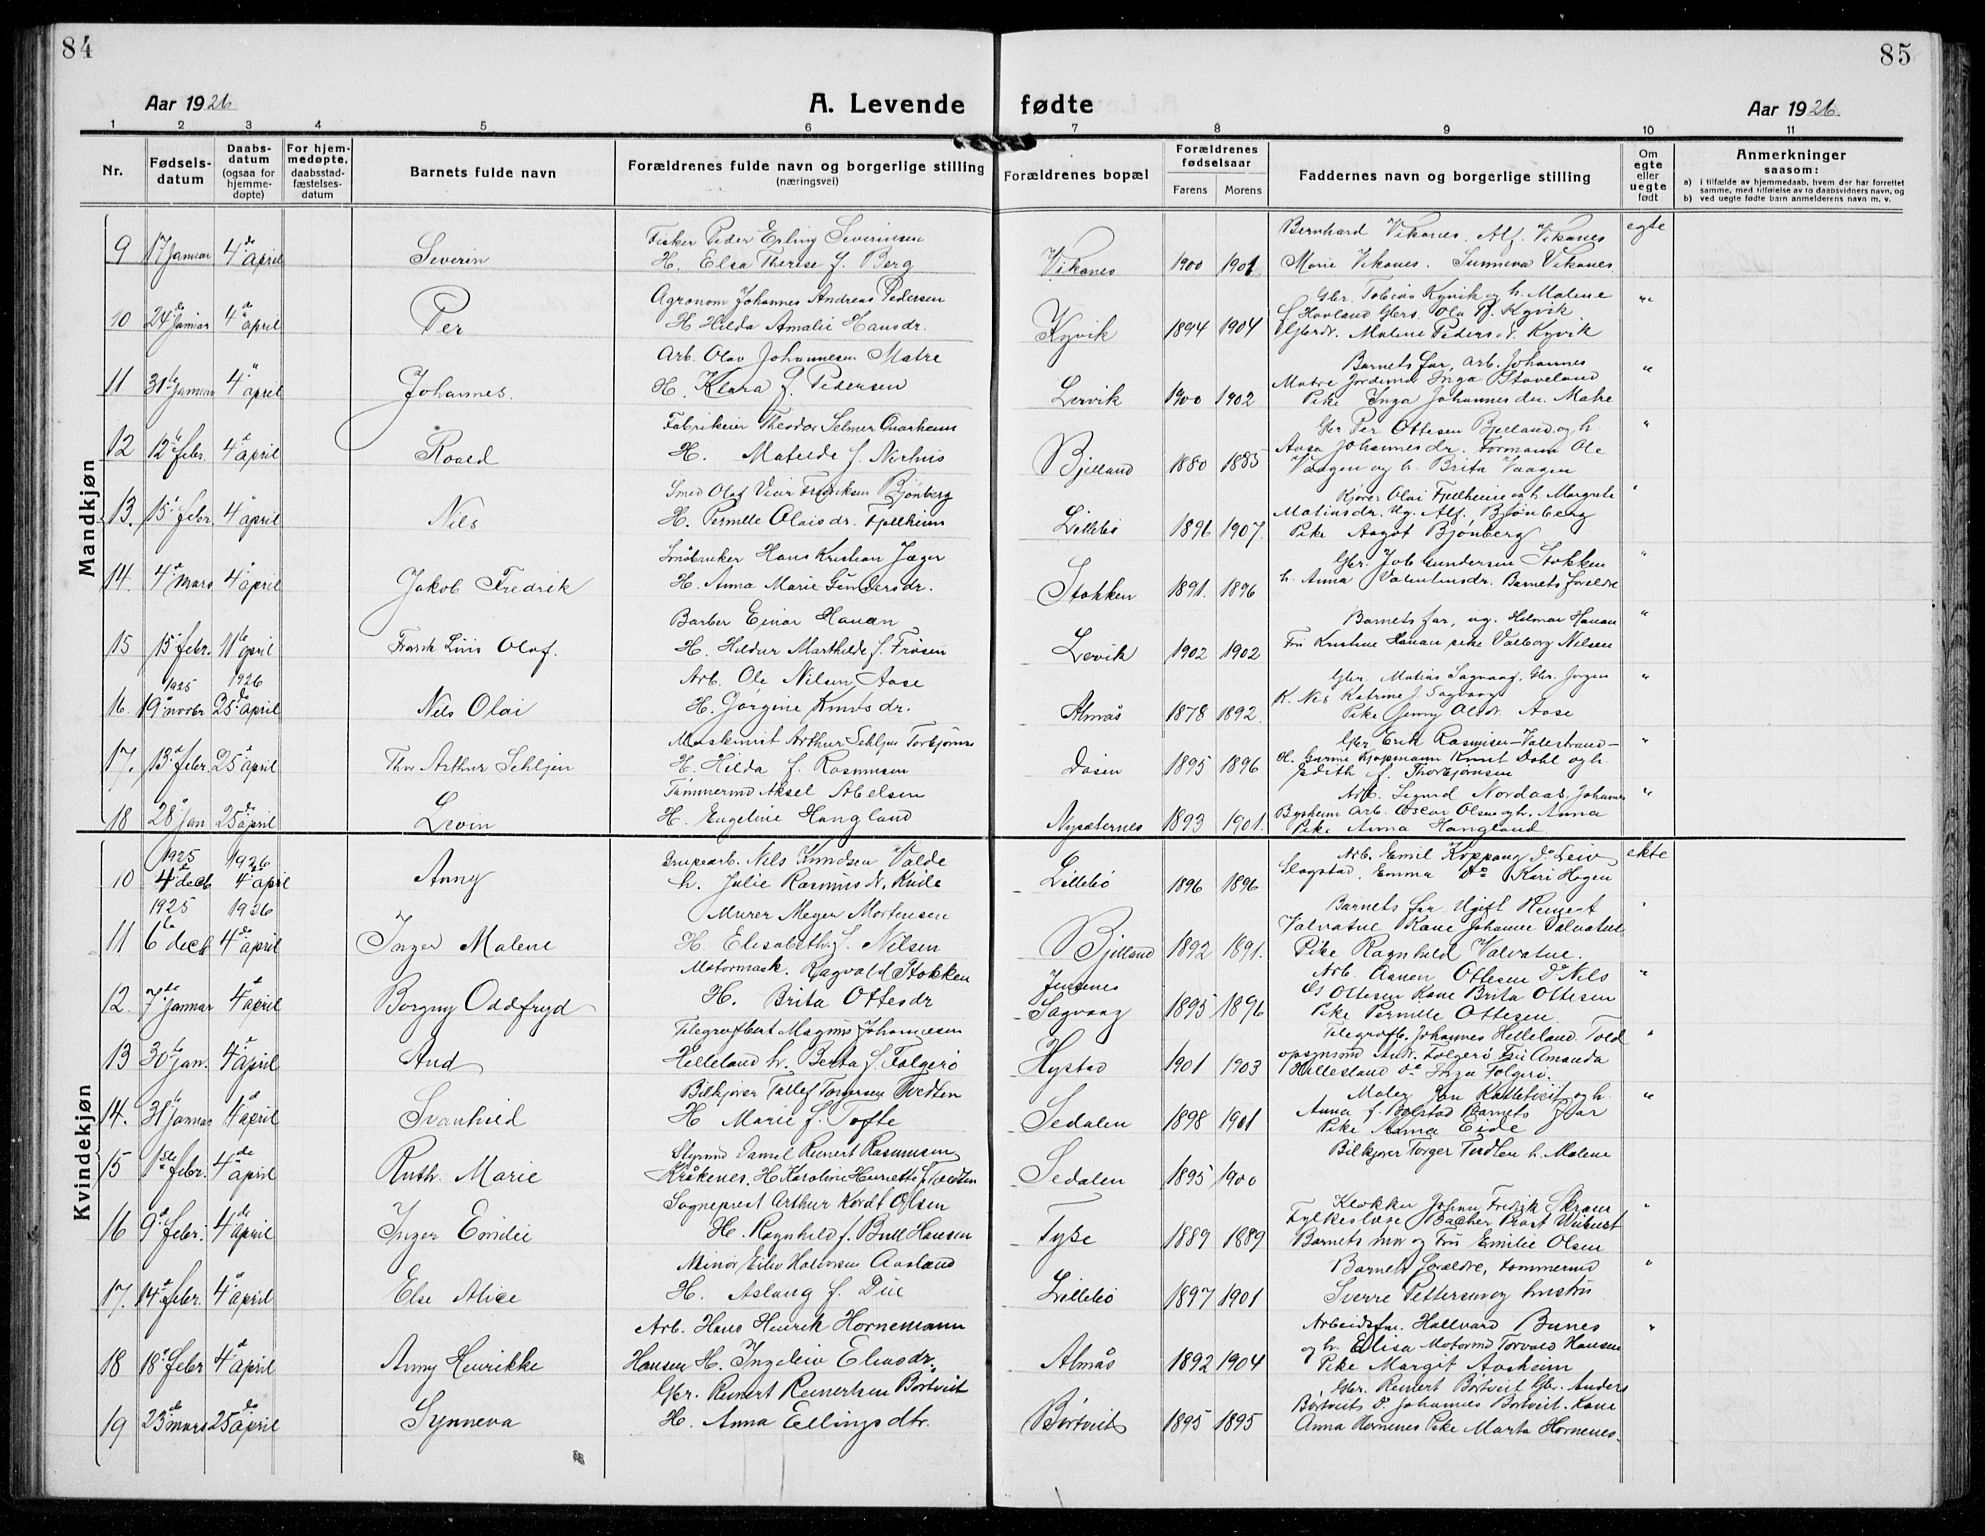 84
85
Aar 1926
A. Levende fødte
Aar 1926
1 2 3 4 5 6 7 8 9 10 11
Nr.
Fødselsdatum
Daabsdatum (ogsaa for hjemmedøpte)
For hjemmedøpte, daabsstadfæstelsesdatum
Barnets fulde navn
Forældrenes fulde navn og borgerlige stilling (næringsvei)
Forældrenes bopæl
Forældrenes fødselsaar
Farens
Morens
Faddernes navn og borgerlige stilling
Om egte eller uegte født
Anmerkninger saasom:
a) i tilfælde av hjemmedaab, hvem der har forrettet samme, med tilføielse av to daabsvidners navn, og
b) ved uegte fødte barn anmelderens navn m. v.
Mandkjøn
Fisker Peder Erling Severinsen
Bernhard Vikanes. Alf. Vikanes
egte
9 17 Januar 4de april Severin H. Elsa Therese f. Berg Vikanes 1900 1901 Marie Vikanes. Sunneva Vikanes
Agronom Johannes Andreas Pedersen
Gbr. Tobias Kyvik og h. Malene
10 24de Januar 4de april Per H. Hilda Amalie Hansdr. Kyvik 1894 1904
f. Havland Gbrs. Ola P. Kyvik
Gbrdr. Malene Peders d. Kyvik
Arb. Olav Johannesen Matre
Barnets far, arb. Johannes
11 31te Januar 4" april Johannes. H. Klara f. Pedersen Lervik 1900 1902
Matre Jordemor Inga Staveland
Pike Inga Johannesdr. Matre
Fabrikeier Theodor Selmer Qvarheim
Gbr Per Ottesen Bjelland og h.
12 12te febr. 4de april Roald H. Matilde f. Nerhus Bjelland 1880 1885
Aasa Johannesdr. Formann Ole
Vaagen og h. Brita Vaagen
Smed Olaf Viar Fredriksen Bjønberg
Kjører Olai Fjellheim og h. Margrete
13. 15" febr. 4de april Nils H. Pernille Olaisdr. Fjellheim Lillebø 1896 1907.
Matiasdr. Ug. Alf. Bjønberg
Pike Aagot Bjønberg
Småbruker Hans Kristian Jæger
Gbr. Job Gundersen Stokken
14. 4de Mars 4de april Jakob Fredrik H. Anna Marie Gundersdr. Stokken 1891. 1896 h. Anna Valentinsdr. Barnets foreldre
Barber Einar Hauan
Barnets far, ug. Hilmar Hauan
15 15" febr. 11te april Olaf. H. Hildur Marthilde f. Frøsen Lervik 1902 1902 Fru Kristine Hauan pike Valborg Nilsen
1925 1926
Arb. Ole Nilsen Aase
Gbr. Matias Sagvaag, Gbr. Jørgen
16. 19de novbr 25de april Nils Olai H. Gørgine Knutsdr. Almås 1878 1892.
Katrine J. Sagvaag
Pike Jenny Olsdr. Aase
Maskinist Arthur Sehljen Torbjørns
Gbr. Erik Rasmusen-Valestrand-
17. 13de febr. 25de april Thor Arthur Sehljen H. Hilda f. Rasmusen Dåsen 1895 1896
H. Gurine Kjøpmann Knut Dahl og h.
Edith f. Thorbjørnsen
Tømmermd Aksel Abelsen
Arb. Sigurd Nordaas, Johannes
18 28de Jan 25de april Levin H. Engeline Haugland Nysæternes 1893 1901.
Bysheim arb. Oscar Olsen og h. Anna
Pike Anna Haugland
Kvindekjøn
1925 1926
Grupearb. Nils Knudsen Valde
Arb. Emil Koppang Do Leiv
ekte
10 4de decb 4de april Anny h. Julie Rasmusdr. Kvile Lillebø 1896 1896 Slogstad, Emma do Kari Hagen
1925 1926
Murer Meyer Mortensen
Barnets far Ugift Reinert
11 6te decb 4de april Inger Malene H. Elisabeth f. Nilsen Bjelland 1892 1891.
Valvatne Kone Johanne Valvatne
Pike Ragnhild Valvatne.
Motormask. Ragvald Stokken
Arb. Aanen Ottesen do Nils
12. 7de Januar 4de april Borgny Oddfryd H. Brita Ottesdr Jensenes Sagvaag 1895 1896
Ottesen Kone Brita Ottesen
Pike Pernille Ottesen.
Telegrafbest Magnus Johannesen
Telegrafb. Johannes Helleland Told
13 30te jan. 4de april Aud Helleland h. Berta f. Følgerø Hystad 1901 1903
opsynsmd Andr. Følgerø Fru Amanda
Hillesland do Inga Følgerø.
Bilkjører Tollef Torgersen Tvedten
Maler Jon Kattetveit og h.
14. 31te Januar 4de april Svanhild H Marie f. Tofte Sedalen 1898 1901
Anna f. Bolstad Barnets far
Pike Anna Eide
Styrmd Daniel Reinert Rasmussen
Bilkjører Torger Tvedten h. Malene
15 1ste febr. 4de april Ruth Marie Kråkenes. H Karoline Henriette f. Tvedten Sedalen 1895 1900
Sogneprest Arthur Kordt Olsen
Klokker Johan Fredrik Skram
16 9de febr. 4de april Inger Emilie H. Ragnhild f. Bull Hansen Tyse 1889 1889
Fylkeslæge Bacher Prost
Barnets mor og Fru Emilie Olsen
Minør Eiliv Halvorsen Aasland
Barnets foreldre, tømmermd
17. 14de febr. 4de april Else Alice H. Aslaug f. Due Lillebø 1897 1901 Sverre Pettersen og hustru
Arb. Hans Henrik Hornemann
Arbeidsfm. Hallvard Bunes
og h. Elisa Motormd Torvald Hansen
18 18de febr 4de april Anny Henrikke Hansen H. Ingeleiv Eliasdr. Almås 1892 1904 Pike Margit Aasheim
Gbr. Reinert Reinertsen Børtveit
Gbr. Reinert Børtveit Gbr. Anders
Børtveit do Johannes Børtveit. Kone
19 23de mars 25de april Synneva H. Anna Ellingsdtr. Børtveit 1895 1895 Anna Hornenes Pike Marta Hornenes.